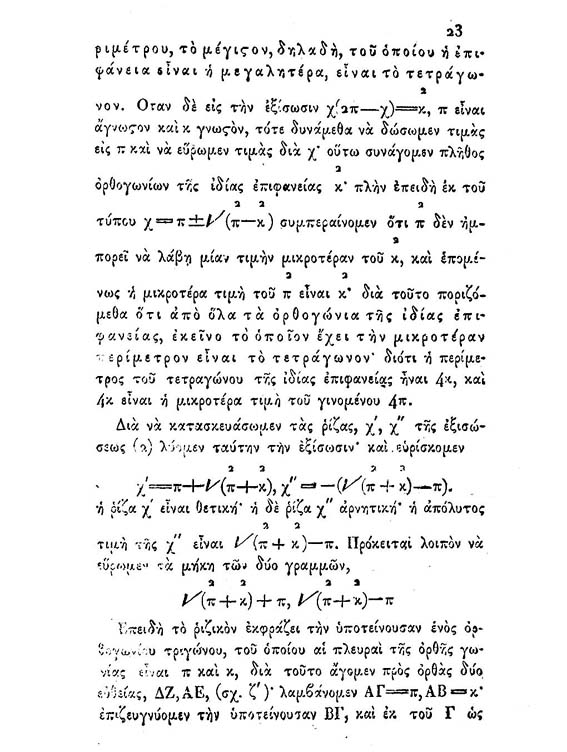 23
ριμέτρου, τὸ μέγιςον, δηλαδὴ, τοῦ ὁποίου ἡ ἐπι-
φάνεια εἶναι ἡ μεγαλητέρα, εἶναι τὸ τετράγω-
2
νον. Οταν δὲ εἰς τὴν ἐξίσωσιν χ(2π—χ)=κ, π εἶναι
ἄγνωςον καὶ κ γνωςὸν, τότε δυνάμεθα νὰ δώσωμεν τιμὰς
εἰς π καὶ νὰ εὕρωμεν τιμὰς διὰ χ· οὕτω συνάγομεν πλῆθος
2
ὀρθογωνίων τῆς ἰδίας ἐπιφανείας κ· πλὴν ἐπειδὴ ἐκ τοῦ
2 2 2
τύπου χ=π±√(π—κ) συμπεραίνομεν ὅτι π δὲν ἠμ-
2
πορεῖ νὰ λάβῃ μίαν τιμὴν μικροτέραν τοῦ κ, καὶ ἑπομέ-
2 2
νως ἡ μικροτέρα τιμὴ τοῦ π εἶναι κ· διὰ τοῦτο ποριζό-
μεθα ὅτι ἀπὸ ὅλα τὰ ὀρθογώνια τῆς ἰδίας ἐπι-
φανείας, ἐκεῖνο τὸ ὁποῖον ἔχει τὴν μικροτέραν
περίμετρον εἶναι τὸ τετράγωνον· διότι ἡ περίμε-
τρος τοῦ τετραγώνου τῆς ἰδίας ἐπιφανείας ἦναι 4κ, καὶ
4κ εἶναι ἡ μικροτέρα τιμὴ τοῦ γινομένου 4π.
Διὰ νὰ κατασκευάσωμεν τὰς ῥίζας, χ′, χ″ τῆς ἐξισώ-
σεως (2) λύομεν ταύτην τὴν ἐξίσωσιν· καὶ εὑρίσκομεν
2 2 2 2
χ′=π+√(π+κ), χ″=—(√(π+κ)—π).
ἡ ῥίζα χ′ εἶναι θετικὴ· ἡ δὲ ῥίζα χ″ ἀρνητικὴ· ἡ ἀπόλυτος
2 2
τιμὴ τῆς χ″ εἶναι √(π+κ)—π. Πρόκειται λοιπὸν νὰ
εὕρωμεν τὰ μήκη τῶν δύο γραμμῶν,
2 2 2 2
√(π+κ)+π, √(π+κ)—π
Ἐπειδὴ τὸ ῥιζικὸν ἐκφράζει τὴν ὑποτείνουσαν ἑνὸς ὀρ-
θογωνίου τριγώνου, τοῦ ὁποίου αἱ πλευραὶ τῆς ὀρθῆς γω-
νίας εἶναι π καὶ κ, διὰ τοῦτο ἄγομεν πρὸς ὀρθὰς δύο
εὐθείας, ΔΖ, ΑΕ, (σχ. ζ′)· λαμβάνομεν ΑΓ=π, ΑΒ=κ·
ἐπιζευγνύομεν τὴν ὑποτείνουσαν ΒΓ, καὶ ἐκ τοῦ Γ ὡς